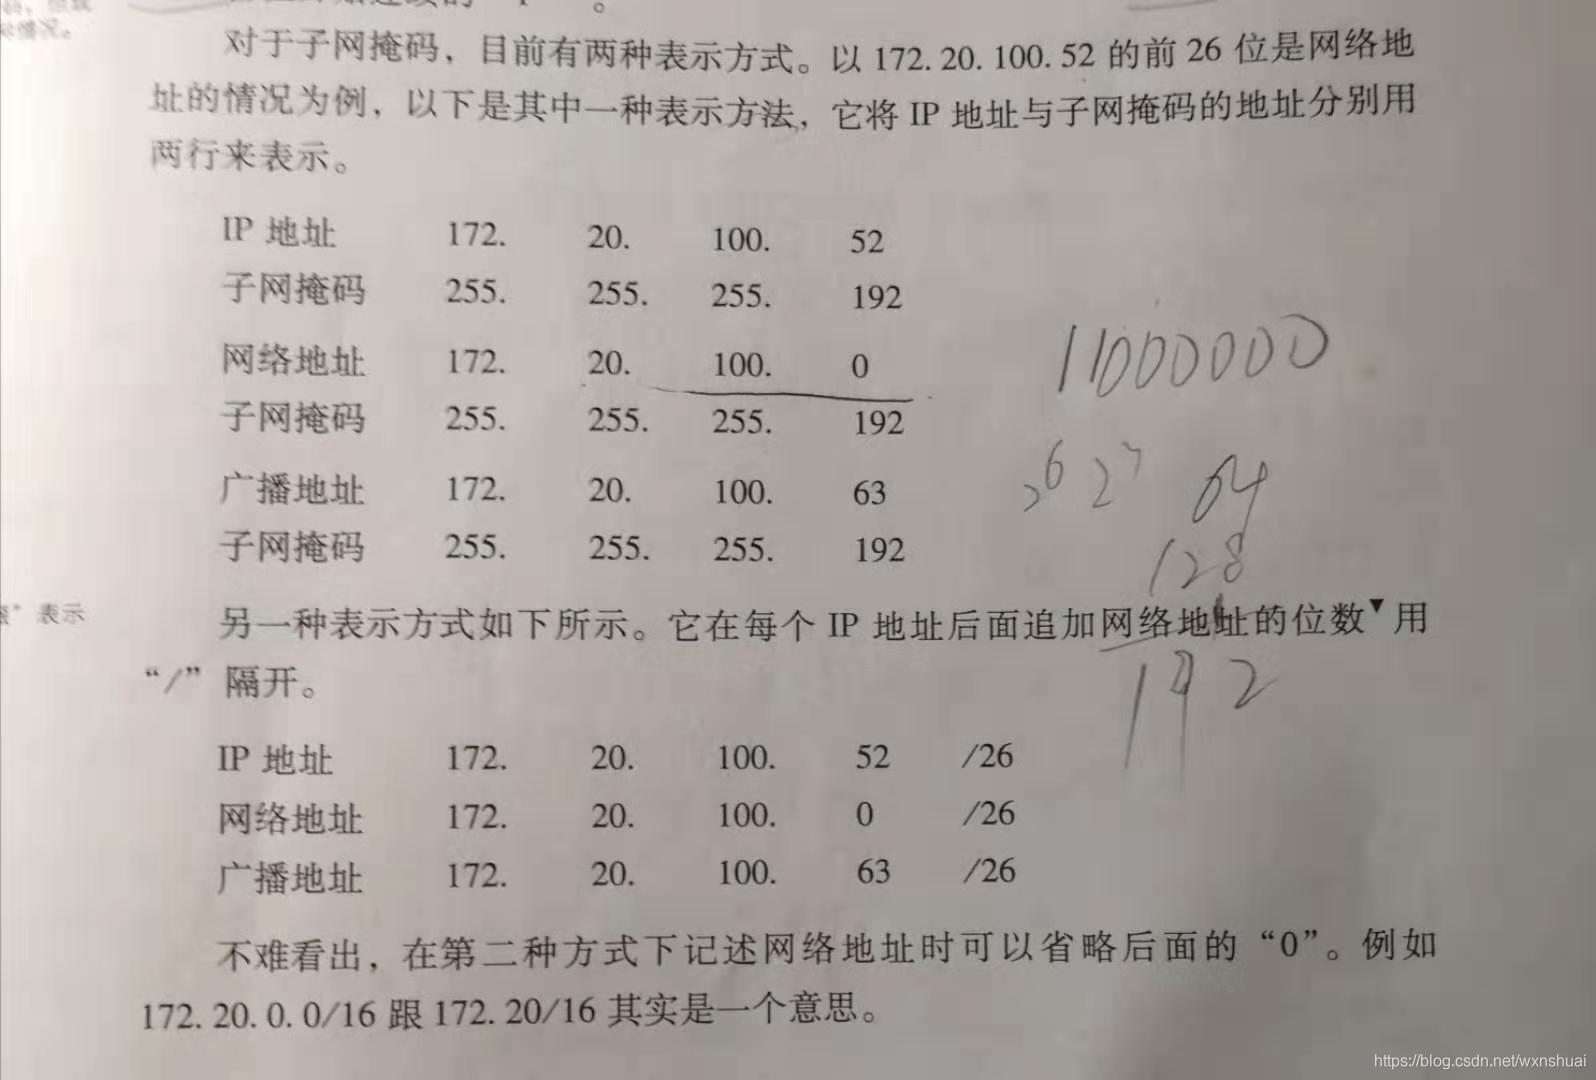 对于子网掩码，目前有两种表示方式。以 172. 20. 100. 52 的前 26 位是网络地
址的情况为例，以下是其中一种表示方法，它将 IP 地址与子网掩码的地址分别用
两行来表示。
IP 地址 172. 20. 100. 52
子网掩码 255. 255. 255. 192
网络地址 172. 20. 100. 0
11000000
子网掩码 255. 255. 255. 192
广播地址 172. 20. 100. 63
2^6 2^7 64
子网掩码 255. 255. 255. 192
128
表示
另一种表示方式如下所示。它在每个 IP 地址后面追加网络地址的位数▼用
“/” 隔开。
192
IP 地址 172. 20. 100. 52 /26
网络地址 172. 20. 100. 0 /26
广播地址 172. 20. 100. 63 /26
不难看出，在第二种方式下记述网络地址时可以省略后面的“0”。例如
172. 20. 0. 0/16 跟 172. 20/16 其实是一个意思。
https://blog.csdn.net/wxnshuai